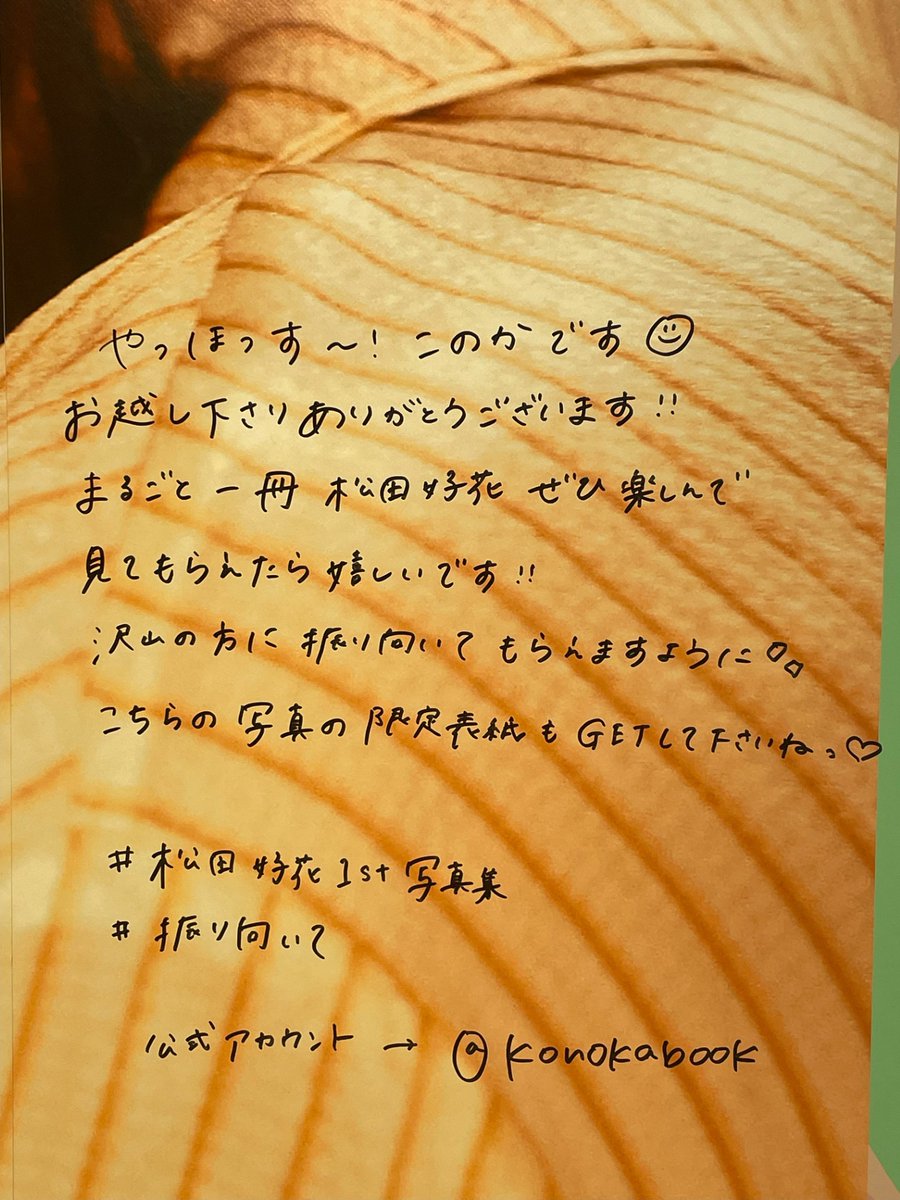 やっほっす〜！このかです☺
お越し下さりありがとうございます!!
まるごと一冊 松田好花 ぜひ楽しんで
見てもらえたら嬉しいです!!
沢山の方に振り向いてもらえますように。。
こちらの写真の限定表紙もGETして下さいねっ♡
#松田好花1st写真集
#振り向いて
公式アカウント→@konokabook